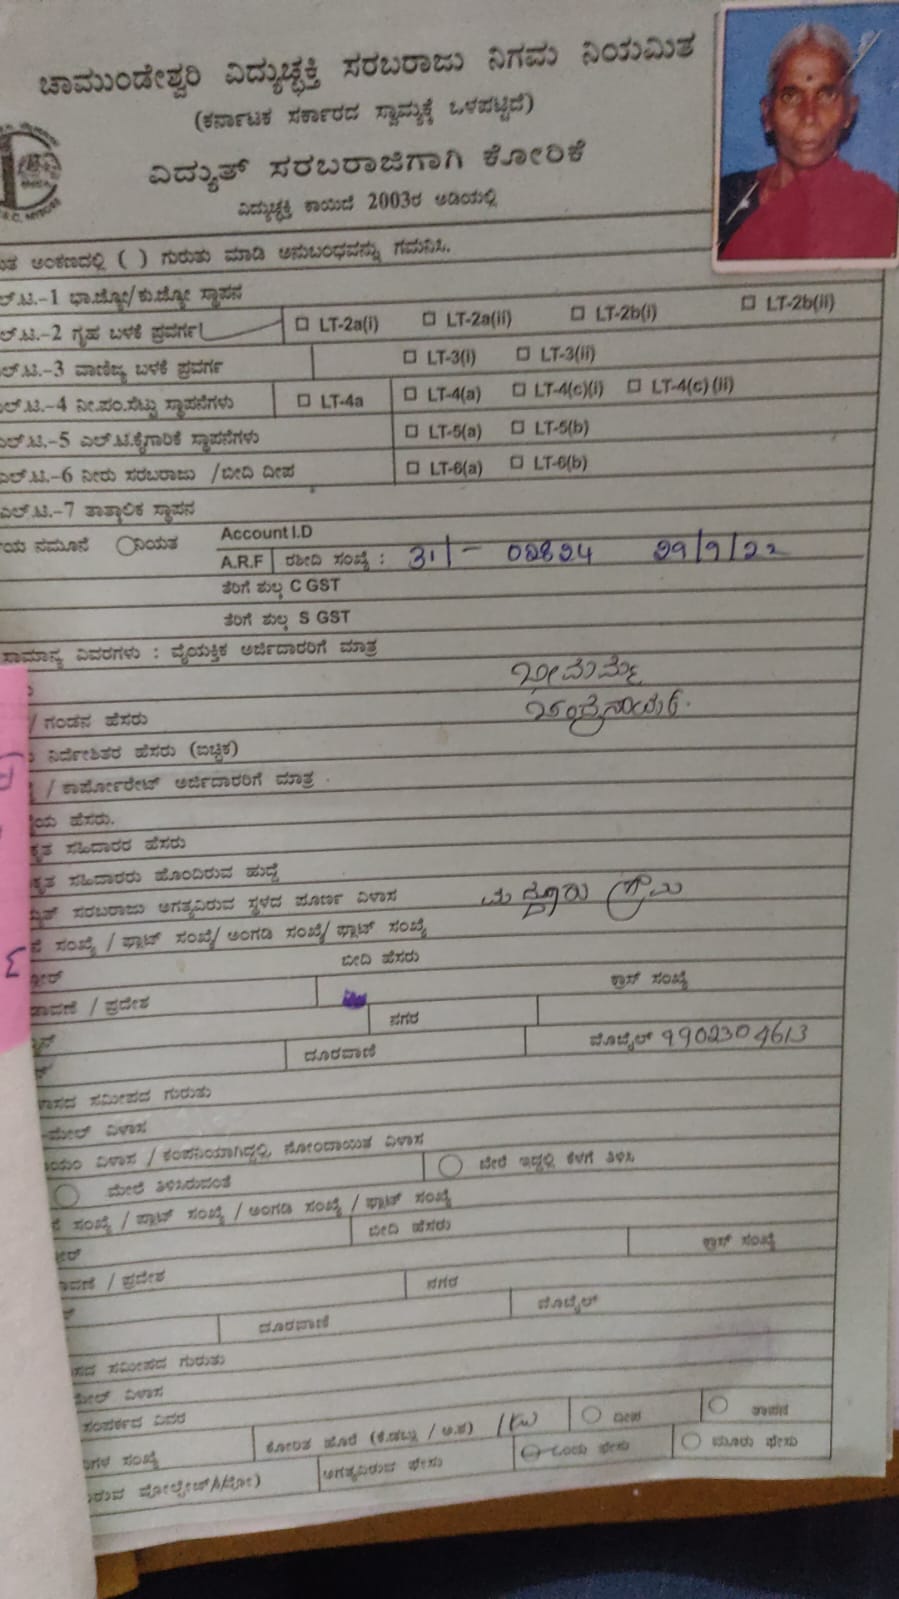 ಚಾಮುಂಡೇಶ್ವರಿ ವಿದ್ಯುಚ್ಛಕ್ತಿ ಸರಬರಾಜು ನಿಗಮ ನಿಯಮಿತ
(ಕರ್ನಾಟಕ ಸರ್ಕಾರದ ಸ್ವಾಮ್ಯಕ್ಕೆ ಒಳಪಟ್ಟಿದೆ)
ವಿದ್ಯುತ್ ಸರಬರಾಜಿಗಾಗಿ ಕೋರಿಕೆ
ವಿದ್ಯುಚ್ಛಕ್ತಿ ಕಾಯಿದೆ 2003ರ ಅಡಿಯಲ್ಲಿ
ಅಂಕಣದಲ್ಲಿ ( ) ಗುರುತು ಮಾಡಿ ಅನುಬಂಧವನ್ನು ಗಮನಿಸಿ.
ಲ್.ಟಿ.-1 ಭಾ.ಜ್ಯೋ/ಕು.ಜ್ಯೋ ಸ್ಥಾಪನ
ಲ್.ಟಿ.-2 ಗೃಹ ಬಳಕೆ ಪ್ರವರ್ಗ LT-2a(i) LT-2a(ii) LT-2b(i) LT-2b(ii)
ಲ್.ಟಿ.-3 ವಾಣಿಜ್ಯ ಬಳಕೆ ಪ್ರವರ್ಗ LT-3(i) LT-3(ii)
ಲ್.ಟಿ.-4 ನೀ.ಪಂ.ಸೆಟ್ಟು ಸ್ಥಾಪನೆಗಳು LT-4a LT-4(a) LT-4(c)(i) LT-4(c)(ii)
ಎಲ್.ಟಿ.-5 ಎಲ್.ಟಿ.ಕೈಗಾರಿಕೆ ಸ್ಥಾಪನೆಗಳು LT-5(a) LT-5(b)
ಎಲ್.ಟಿ.-6 ನೀರು ಸರಬರಾಜು /ಬೀದಿ ದೀಪ LT-6(a) LT-6(b)
ಎಲ್.ಟಿ.-7 ತಾತ್ಕಾಲಿಕ ಸ್ಥಾಪನ
ಯ ನಮೂನೆ ನಿಯತ Account I.D
A.R.F ರಶೀದಿ ಸಂಖ್ಯೆ : 31/- 02824 29/9/22
ತೆರಿಗೆ ಶುಲ್ಕ C GST
ತೆರಿಗೆ ಶುಲ್ಕ S GST
ಸಾಮಾನ್ಯ ವಿವರಗಳು : ವೈಯಕ್ತಿಕ ಅರ್ಜಿದಾರರಿಗೆ ಮಾತ್ರ
/ ಗಂಡನ ಹೆಸರು
ನಿರ್ದೇಶಿತರ ಹೆಸರು (ಐಚ್ಛಿಕ)
/ ಕಾರ್ಪೋರೇಟ್ ಅರ್ಜಿದಾರರಿಗೆ ಮಾತ್ರ .
ಯ ಹೆಸರು.
ಕೃತ ಸಹಿದಾರರ ಹೆಸರು
ಕೃತ ಸಹಿದಾರರು ಹೊಂದಿರುವ ಹುದ್ದೆ
ಯತ್ ಸರಬರಾಜು ಅಗತ್ಯವಿರುವ ಸ್ಥಳದ ಪೂರ್ಣ ವಿಳಾಸ ಮದ್ದೂರು ಗ್ರಾಮ
ಸಂಖ್ಯೆ / ಪ್ಲಾಟ್ ಸಂಖ್ಯೆ/ ಅಂಗಡಿ ಸಂಖ್ಯೆ/ ಫ್ಲಾಟ್ ಸಂಖ್ಯೆ
ಬೀದಿ ಹೆಸರು
ಡಾವಣೆ / ಪ್ರದೇಶ ಕ್ರಾಸ್ ಸಂಖ್ಯೆ
ನಗರ
ದೂರವಾಣಿ ಮೊಬೈಲ್ 9902304613
ಳಾಸದ ಸಮೀಪದ ಗುರುತು
-ಮೇಲ್ ವಿಳಾಸ
ಯಂ ವಿಳಾಸ / ಕಂಪನಿಯಾಗಿದ್ದಲ್ಲಿ, ನೋಂದಾಯಿತ ವಿಳಾಸ
ಮೇಲೆ ತಿಳಿಸಿರುವಂತೆ ಬೇರೆ ಇದ್ದಲ್ಲಿ ಕೆಳಗೆ ತಿಳಿಸಿ
ಸಂಖ್ಯೆ / ಪ್ಲಾಟ್ ಸಂಖ್ಯೆ / ಅಂಗಡಿ ಸಂಖ್ಯೆ / ಫ್ಲಾಟ್ ಸಂಖ್ಯೆ
ಬೀದಿ ಹೆಸರು
ಾವಣೆ / ಪ್ರದೇಶ ಕ್ರಾಸ್ ಸಂಖ್ಯೆ
ನಗರ
ದೂರವಾಣಿ ಮೊಬೈಲ್
ಾಸದ ಸಮೀಪದ ಗುರುತು
ಮೇಲ್ ವಿಳಾಸ
ಸಂಪರ್ಕದ ವಿವರ
ಗಳ ಸಂಖ್ಯೆ ಕೋರಿತ ಹೊರೆ (ಕಿ.ಡಬ್ಲ್ಯು / ಅ.ಶ) 1KW ದೀಪ ತಾಪನ
ರುವ ವೋಲ್ಟೇಜ್ ಅಗತ್ಯವಿರುವ ಫೇಸು ಒಂದು ಫೇಸು ಮೂರು ಫೇಸು